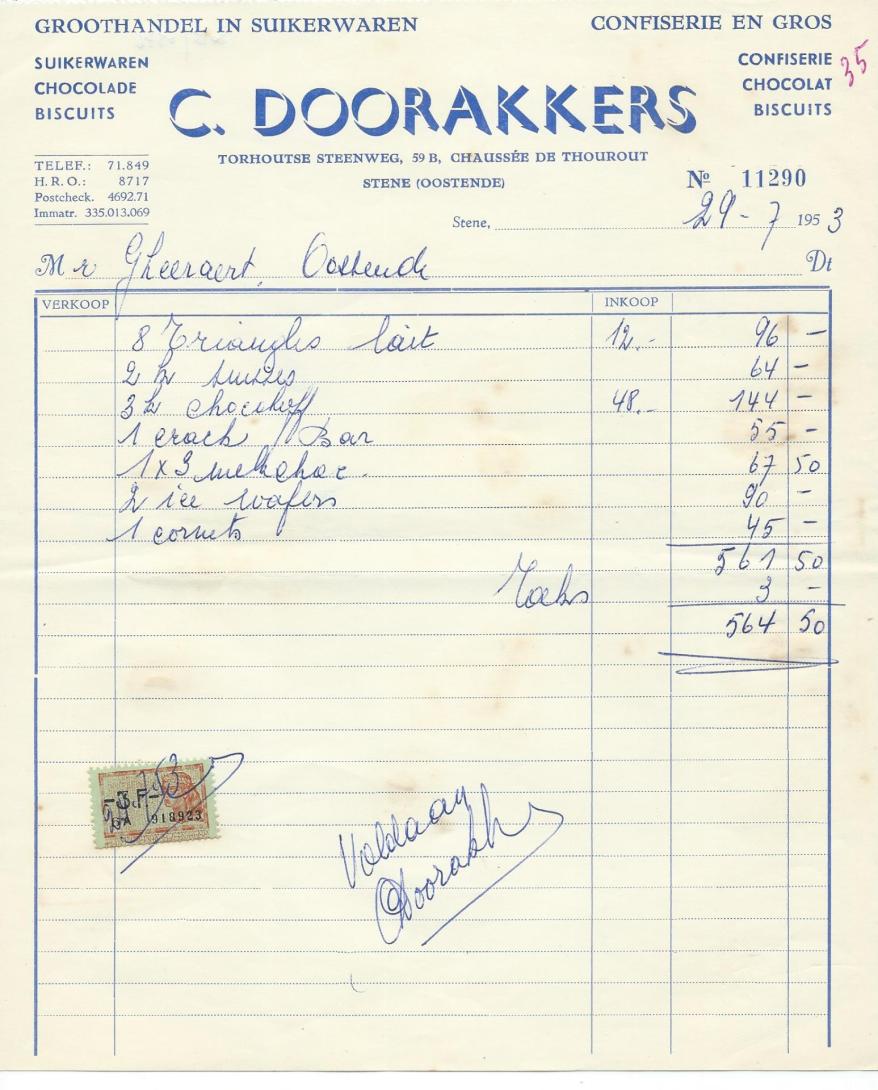 GROOTHANDEL IN SUIKERWAREN CONFISERIE EN GROS
SUIKERWAREN
CHOCOLADE
BISCUITS
C. DOORAKKERS
CONFISERIE
CHOCOLAT
BISCUITS
35
TORHOUTSE STEENWEG, 59 B, CHAUSSÉE DE THOUROUT
STENE (OOSTENDE)
TELEF.: 71.849
H. R. O.: 8717
Postcheck. 4692.71
Immatr. 335.013.069
Nº 11290
Stene, 29 - 7 1953
Mr Gheeraert, Oostende Dt
VERKOOP INKOOP
8 Triangles lait 12.- 96 -
2 h 64 -
3 h chocohoff 48.- 144 -
1 crack Bar 55 -
1 x 3 melkchoc. 67 50
2 ice wafers 90 -
1 cornets 45 -
561 50
3 -
564 50
- 3 F -
918923
Voldaan
Doorakk